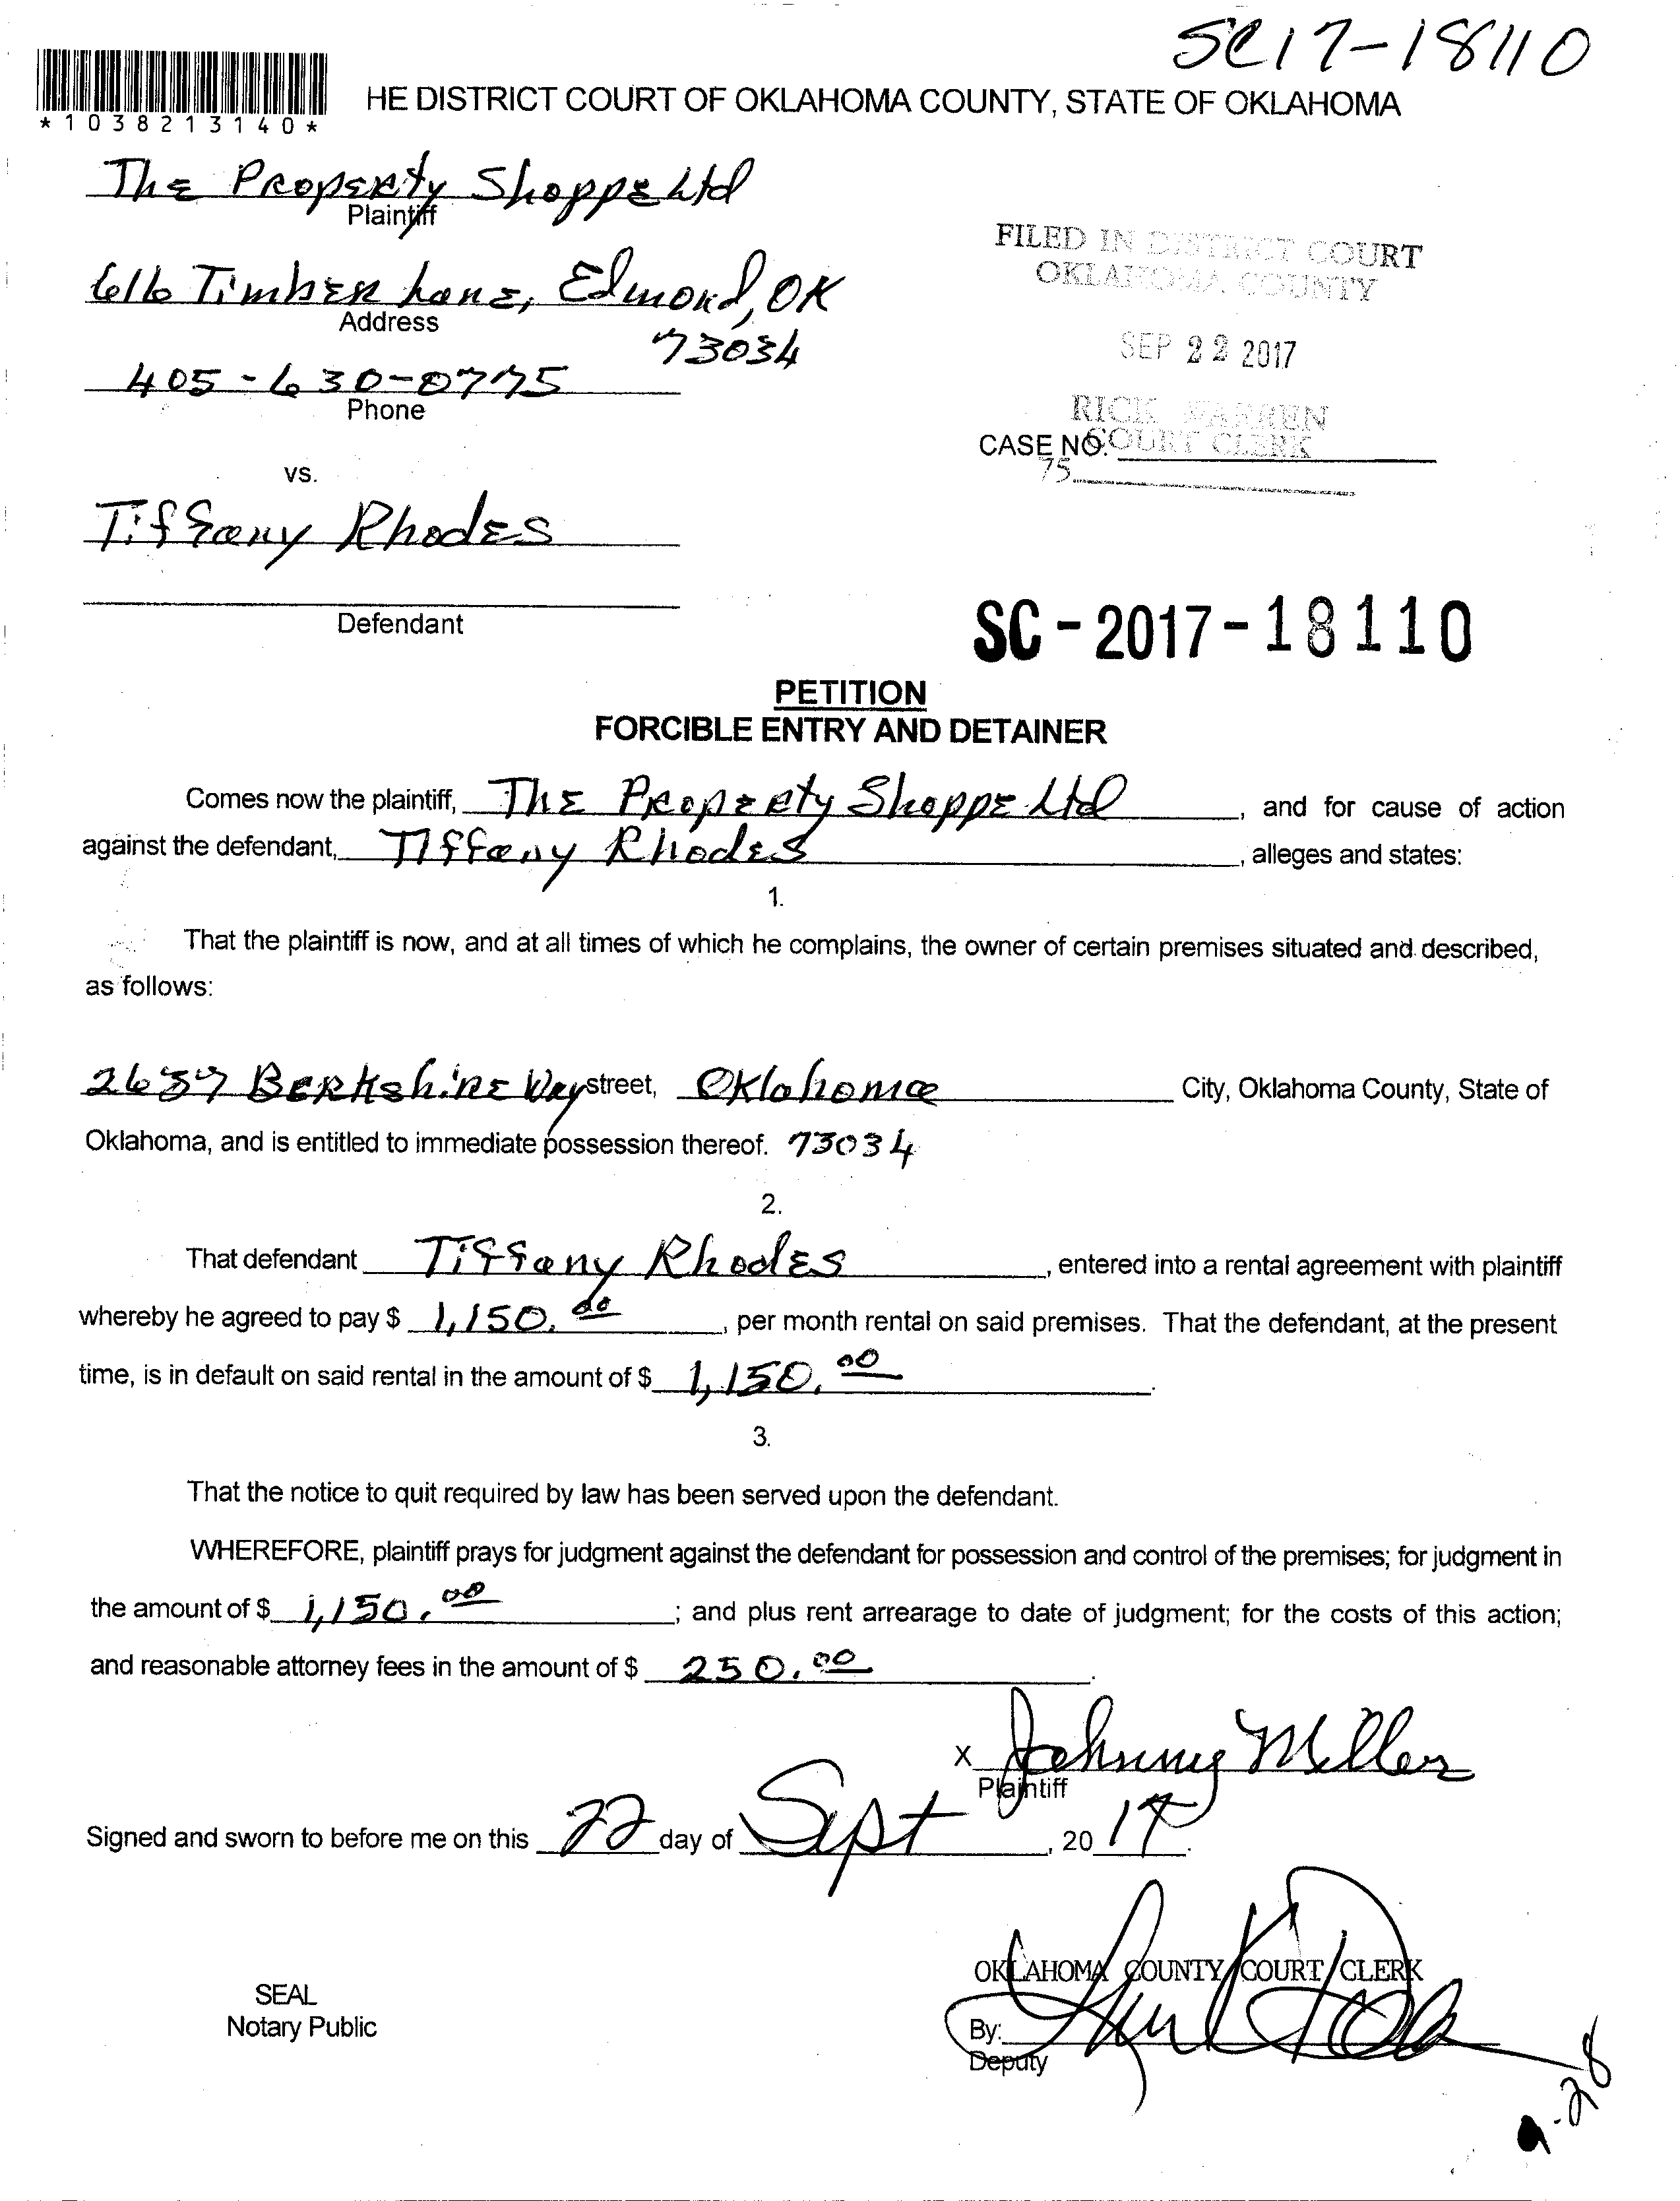 SC17-18110
*1038213140*
HE DISTRICT COURT OF OKLAHOMA COUNTY, STATE OF OKLAHOMA
The Property Shoppe Ltd
Plaintiff
616 Timber Lane, Edmond, OK
Address
73034
405-630-0775
Phone
FILED IN DISTRICT COURT
OKLAHOMA COUNTY
SEP 22 2017
RICK WARREN
COURT CLERK
CASE NO.
75
vs.
Tiffany Rhodes
Defendant
SC-2017-18110
PETITION
FORCIBLE ENTRY AND DETAINER
Comes now the plaintiff, The Property Shoppe Ltd, and for cause of action
against the defendant, Tiffany Rhodes, alleges and states:
1.
That the plaintiff is now, and at all times of which he complains, the owner of certain premises situated and described,
as follows:
Berkshire Way street, Oklahoma City, Oklahoma County, State of
Oklahoma, and is entitled to immediate possession thereof. 73034
2.
That defendant Tiffany Rhodes, entered into a rental agreement with plaintiff
whereby he agreed to pay $ 1,150.00, per month rental on said premises. That the defendant, at the present
time, is in default on said rental in the amount of $ 1,150.00.
3.
That the notice to quit required by law has been served upon the defendant.
WHEREFORE, plaintiff prays for judgment against the defendant for possession and control of the premises; for judgment in
the amount of $ 1,150.00; and plus rent arrearage to date of judgment; for the costs of this action;
and reasonable attorney fees in the amount of $ 250.00.
X Johnny Miller
Plaintiff
Signed and sworn to before me on this 22 day of Sept, 2017.
OKLAHOMA COUNTY COURT CLERK
SEAL
Notary Public
By:
Deputy
9-28